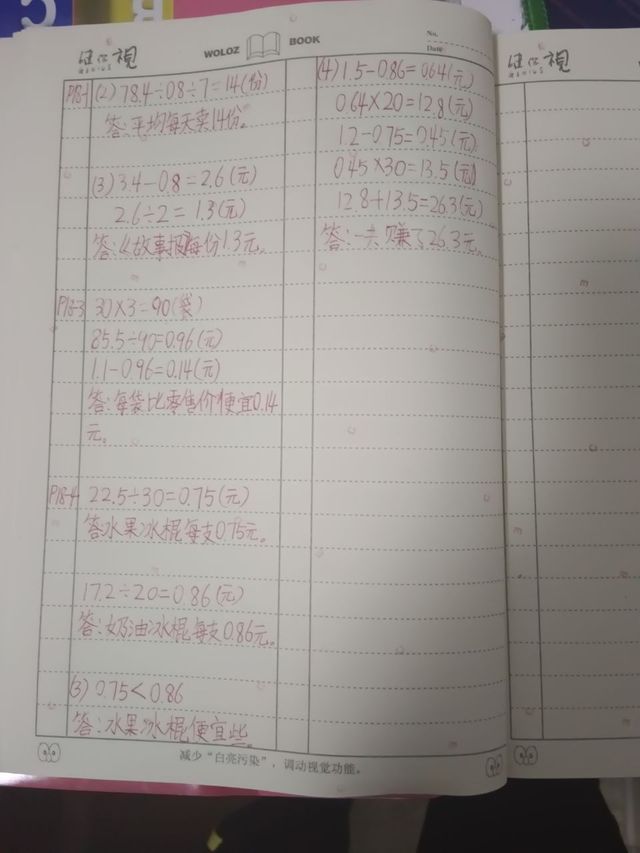 WOLOZ BOOK
No.
Date:
P18-1 (2) 78.4÷0.8÷7=14(份)
答:平均每天卖14份。
(3) 3.4-0.8=2.6(元)
2.6÷2=1.3(元)
答:《故事报》每份1.3元。
P18-3 30×3=90(袋)
85.5÷90=0.96(元)
1.1-0.96=0.14(元)
答:每袋比零售价便宜0.14
元。
P18-4 22.5÷30=0.75(元)
答:水果冰棍每支0.75元。
17.2÷20=0.86(元)
答:奶油冰棍每支0.86元。
(3) 0.75<0.86
答:水果冰棍便宜些。
(4) 1.5-0.86=0.64(元)
0.64×20=12.8(元)
1.2-0.75=0.45(元)
0.45×30=13.5(元)
12.8+13.5=26.3(元)
答:一共赚了26.3元。
减少“白亮污染”,调动视觉功能。